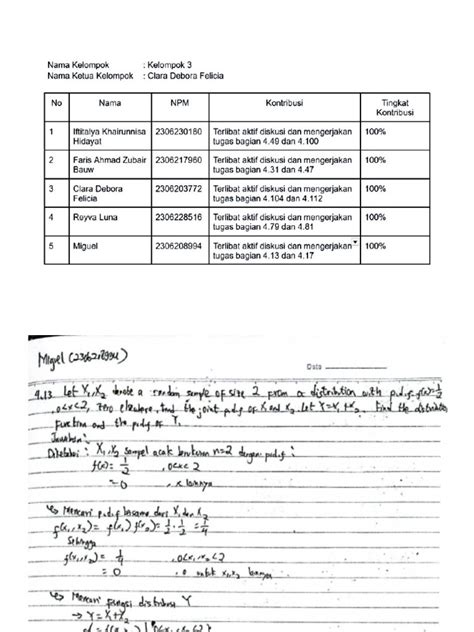 Nama Kelompok : Kelompok 3
Nama Ketua Kelompok : Clara Debora Felicia
No Nama NPM Kontribusi Tingkat Kontribusi
1 Iftitalya Khairunnisa Hidayat 2306230180 Terlibat aktif diskusi dan mengerjakan tugas bagian 4.49 dan 4.100 100%
2 Faris Ahmad Zubair Bauw 2306217960 Terlibat aktif diskusi dan mengerjakan tugas bagian 4.31 dan 4.47 100%
3 Clara Debora Felicia 2306203772 Terlibat aktif diskusi dan mengerjakan tugas bagian 4.104 dan 4.112 100%
4 Reyva Luna 2306228516 Terlibat aktif diskusi dan mengerjakan tugas bagian 4.79 dan 4.81 100%
5 Miguel 2306208994 Terlibat aktif diskusi dan mengerjakan tugas bagian 4.13 dan 4.17 100%
Miguel
Date
4.13 Let X₁, X₂ denote a random sample of size 2 from a distribution with p.d.f. f(x)=1/2
, 0<x<2, zero elsewhere. Find the joint p.d.f of X₁ and X₂. Let Y=X₁+X₂. Find the distribution
function and the p.d.f of Y.
Jawaban:
Diketahui: X₁, X₂ sampel acak berukuran n=2 dengan p.d.f:
f(x) = 1/2 , 0<x<2
= 0 , x lainnya
↳ Mencari p.d.f bersama dari X₁ dan X₂
f(x₁,x₂) = f(x₁) f(x₂) = 1/2 · 1/2 = 1/4
Sehingga
f(x₁,x₂) = 1/4 , 0<x₁,x₂<2
= 0 , untuk x₁,x₂ lainnya
↳ Mencari fungsi distribusi Y
→ Y = X₁+X₂